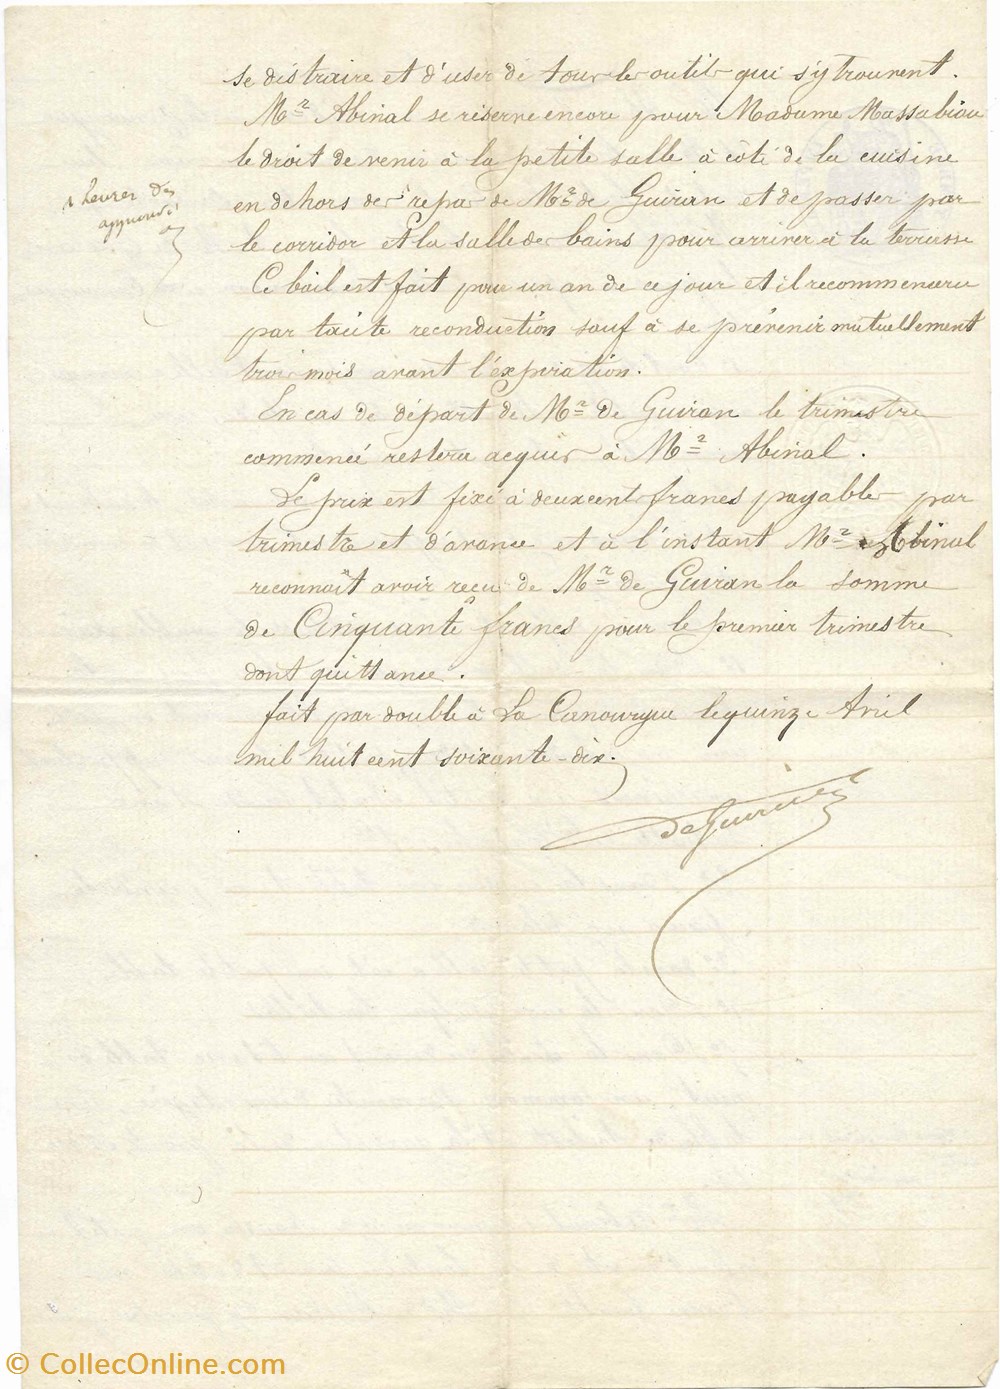 se distraire et d'user de tous les outils qui s'y trouvent.
Mr Abinal se réserve encore pour Madame Massabiau
le droit de venir à la petite salle à côté de la cuisine
en dehors des repas de Mr de Guiran et de passer par
le corridor et la salle de bains pour arriver à la terrasse
Ce bail est fait pour un an de ce jour et il recommencera
par tacite reconduction sauf à se prévenir mutuellement
trois mois avant l'expiration.
En cas de départ de Mr de Guiran le trimestre
commencé restera acquis à Mr Abinal.
Le prix est fixé à deux cent francs payables par
trimestre et d'avance et à l'instant Mr Abinal
reconnaît avoir reçu de Mr de Guiran la somme
de Cinquante francs pour le premier trimestre
dont quittance.
fait par double à La Canourgue le quinze Avril
mil huit cent soixante-dix.
heures des
approuvé
DeGuiran
© CollecOnline.com